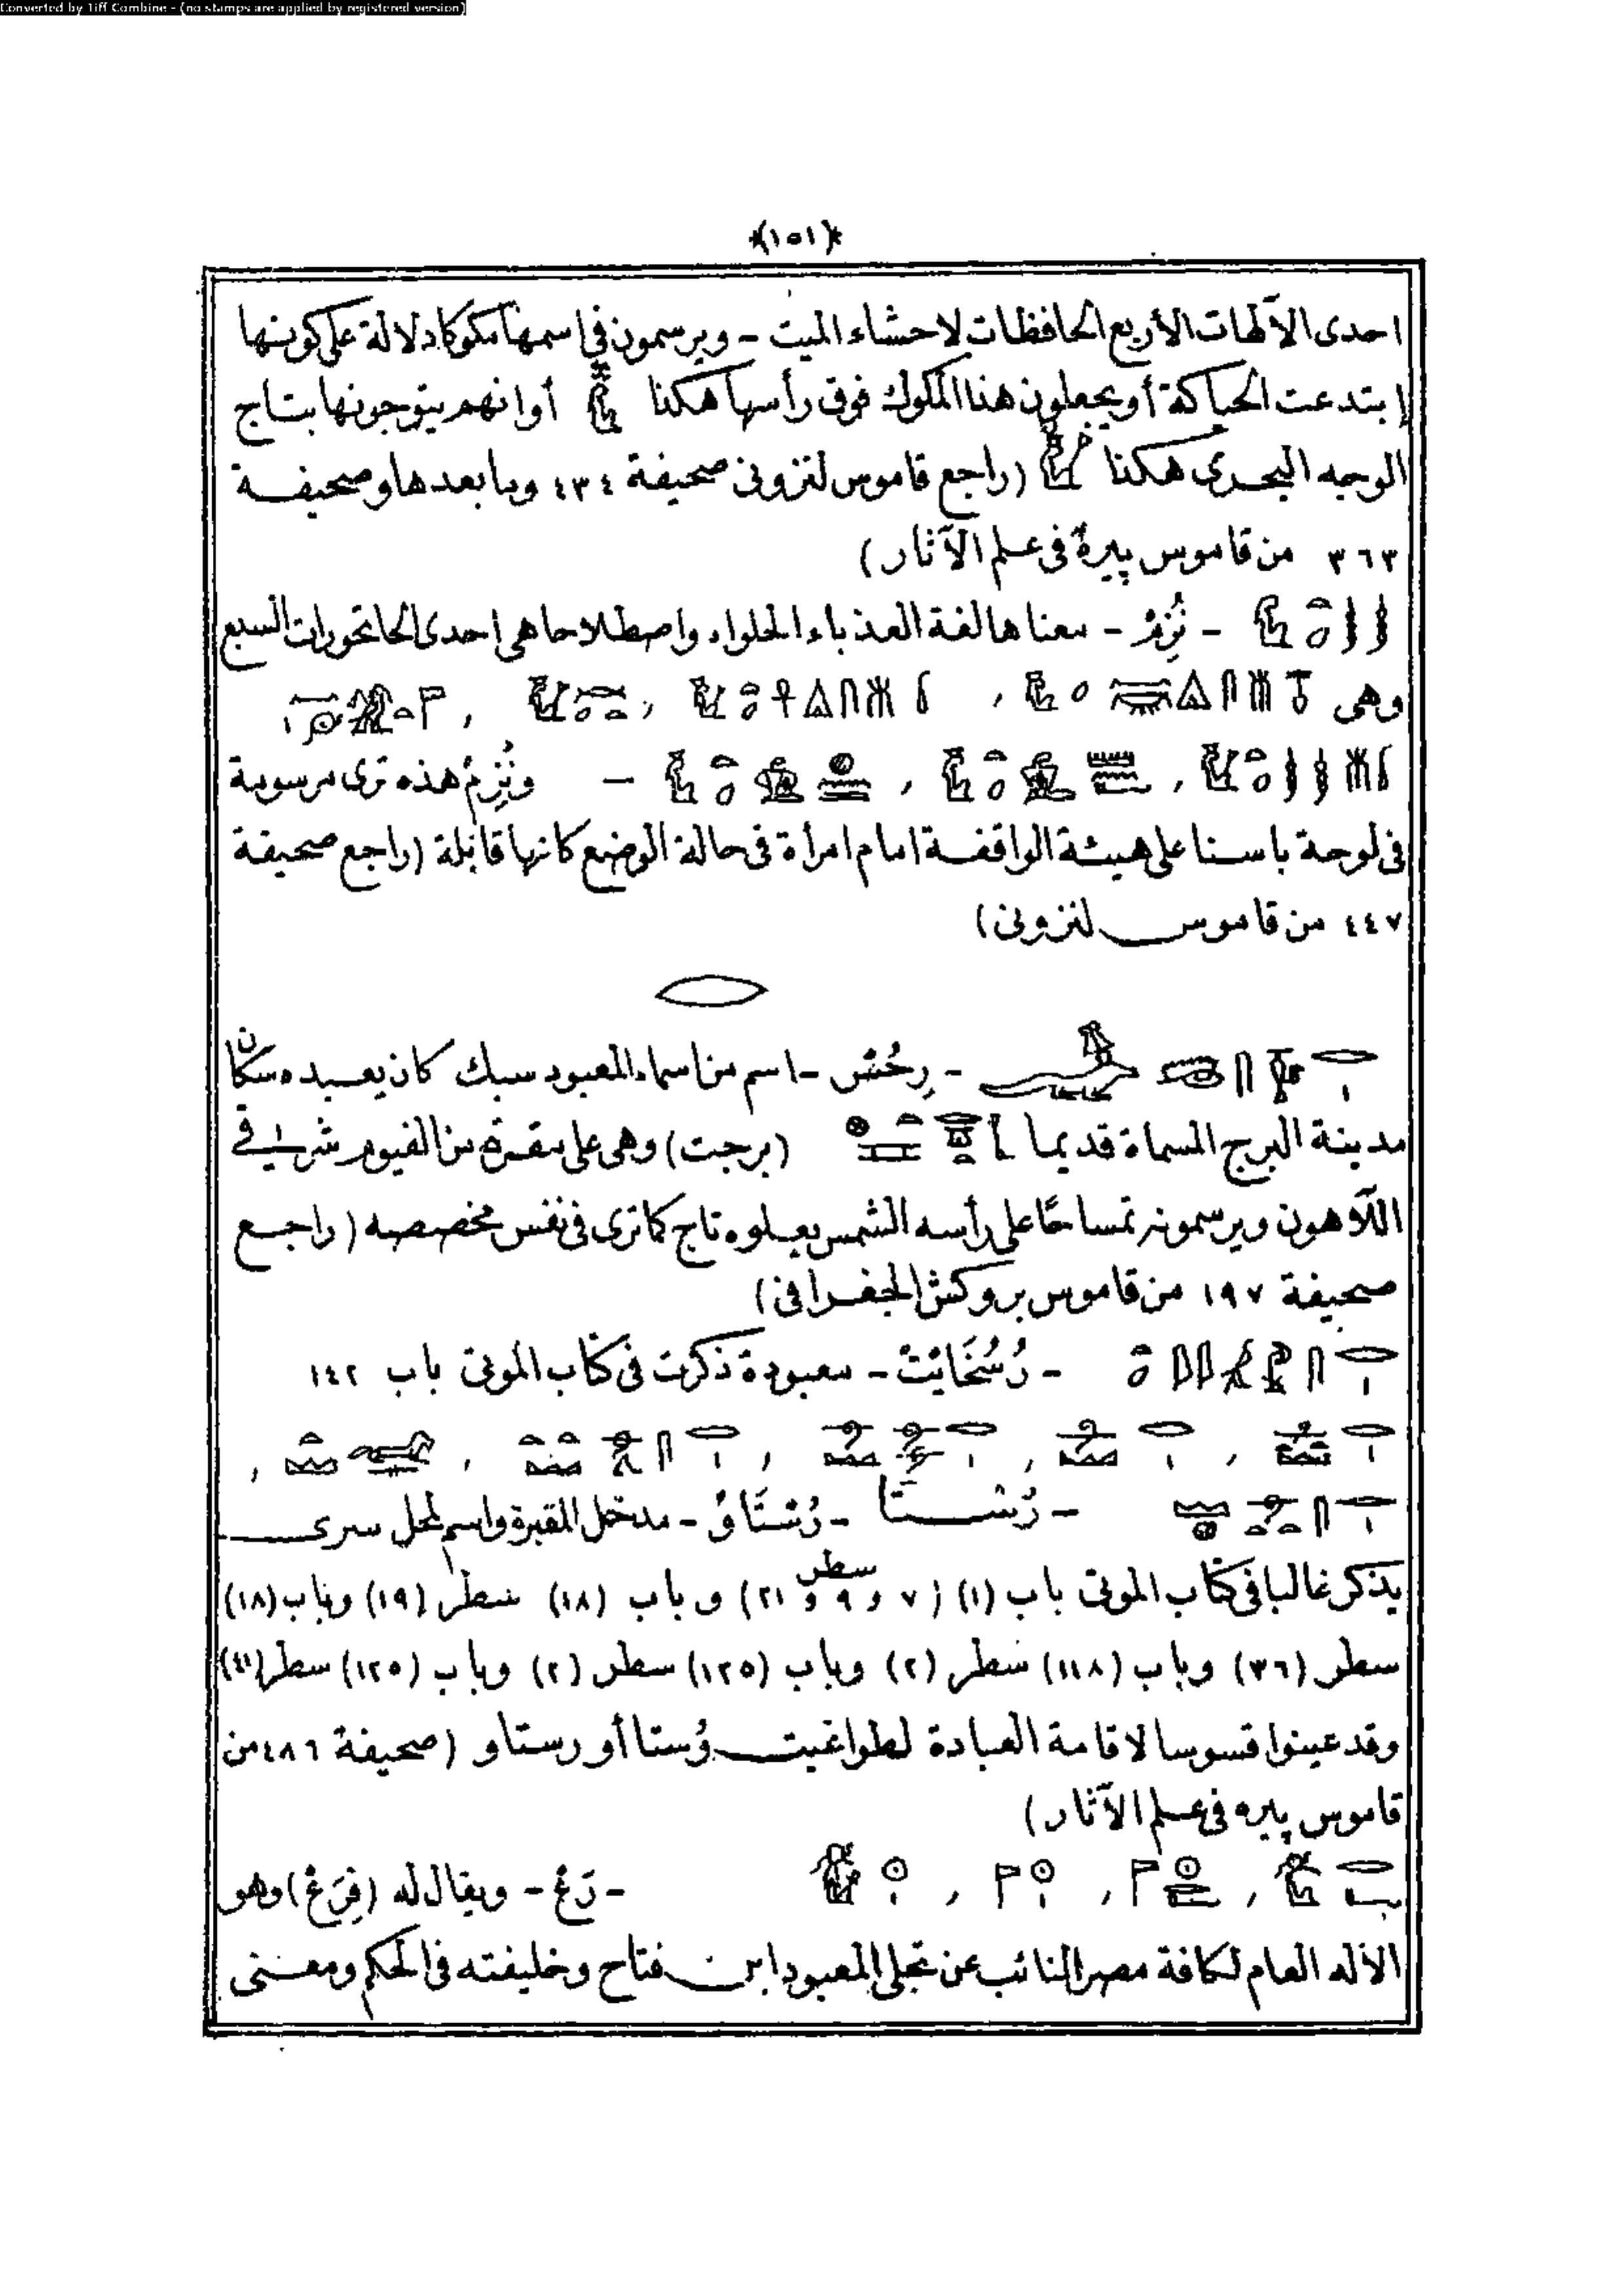 Converted by Tiff Combine - (no stamps are applied by registered version)
﴿١٥١﴾
احدى الآلهات الأربع الحافظات لاحشاء الميت - ويرسمون فى اسمها مكوكا دلالة على كونها
إبتدعت الحياكة أو يجعلون هذا المكوك فوق رأسها هكذا أو انهم يتوجونها بتاج
الوجه البحرى هكذا (راجع قاموس لنزونى صحيفة ٤٣٤ وما بعدها وصحيفة
٣٦٣ من قاموس پيره فى علم الآثار)
- نُزِمْ - معناها لغة العذباء الحلواء واصطلاحا هى احدى الحاتحورات السبع
وهى
— ونُزِمْ هذه ترى مرسومة
فى لوحة باسنا على هيئة الواقفة امام امرأة فى حالة الوضع كانها قابلة (راجع صحيفة
٤٤٧ من قاموس لنزونى)
- رِحُسْ - اسم من اسماء المعبود سبك كان يعبده سكان
مدينة البرج المسماة قديما (برجت) وهى على مقربة من الفيوم شرقى
اللاهون ويرسمونه تمساحًا على رأسه الشمس يعلوه تاج كما ترى فى نفس مخصصه (راجع
صحيفة ١٩٧ من قاموس بروكش الجغرافى)
- رُسْخَايَتْ - معبودة ذكرت فى كتاب الموتى باب ١٤٢
- رُسْتَا - رُسْتَاوْ - مدخل المقبرة واسم لمحل سرى
يذكر غالبا فى كتاب الموتى باب (١) سطر (٧ و ٩ و ٢١) وباب (١٨) سطر (١٩) وباب (١٨)
سطر (٣٦) وباب (١١٨) سطر (٢) وباب (١٢٥) سطر (٢) وباب (١٢٥) سطر
وقد عينوا قسوسا لاقامة العبادة لطواغيت رُستا أو رستاو (صحيفة ٤٨٦ من
قاموس پيره فى علم الآثار)
- رَعْ - ويقال له (فِرَع) وهو
الاله العام لكافة مصر النائب عن تجلى المعبود ابن فتاح وخليفته فى الحكم ومعنى